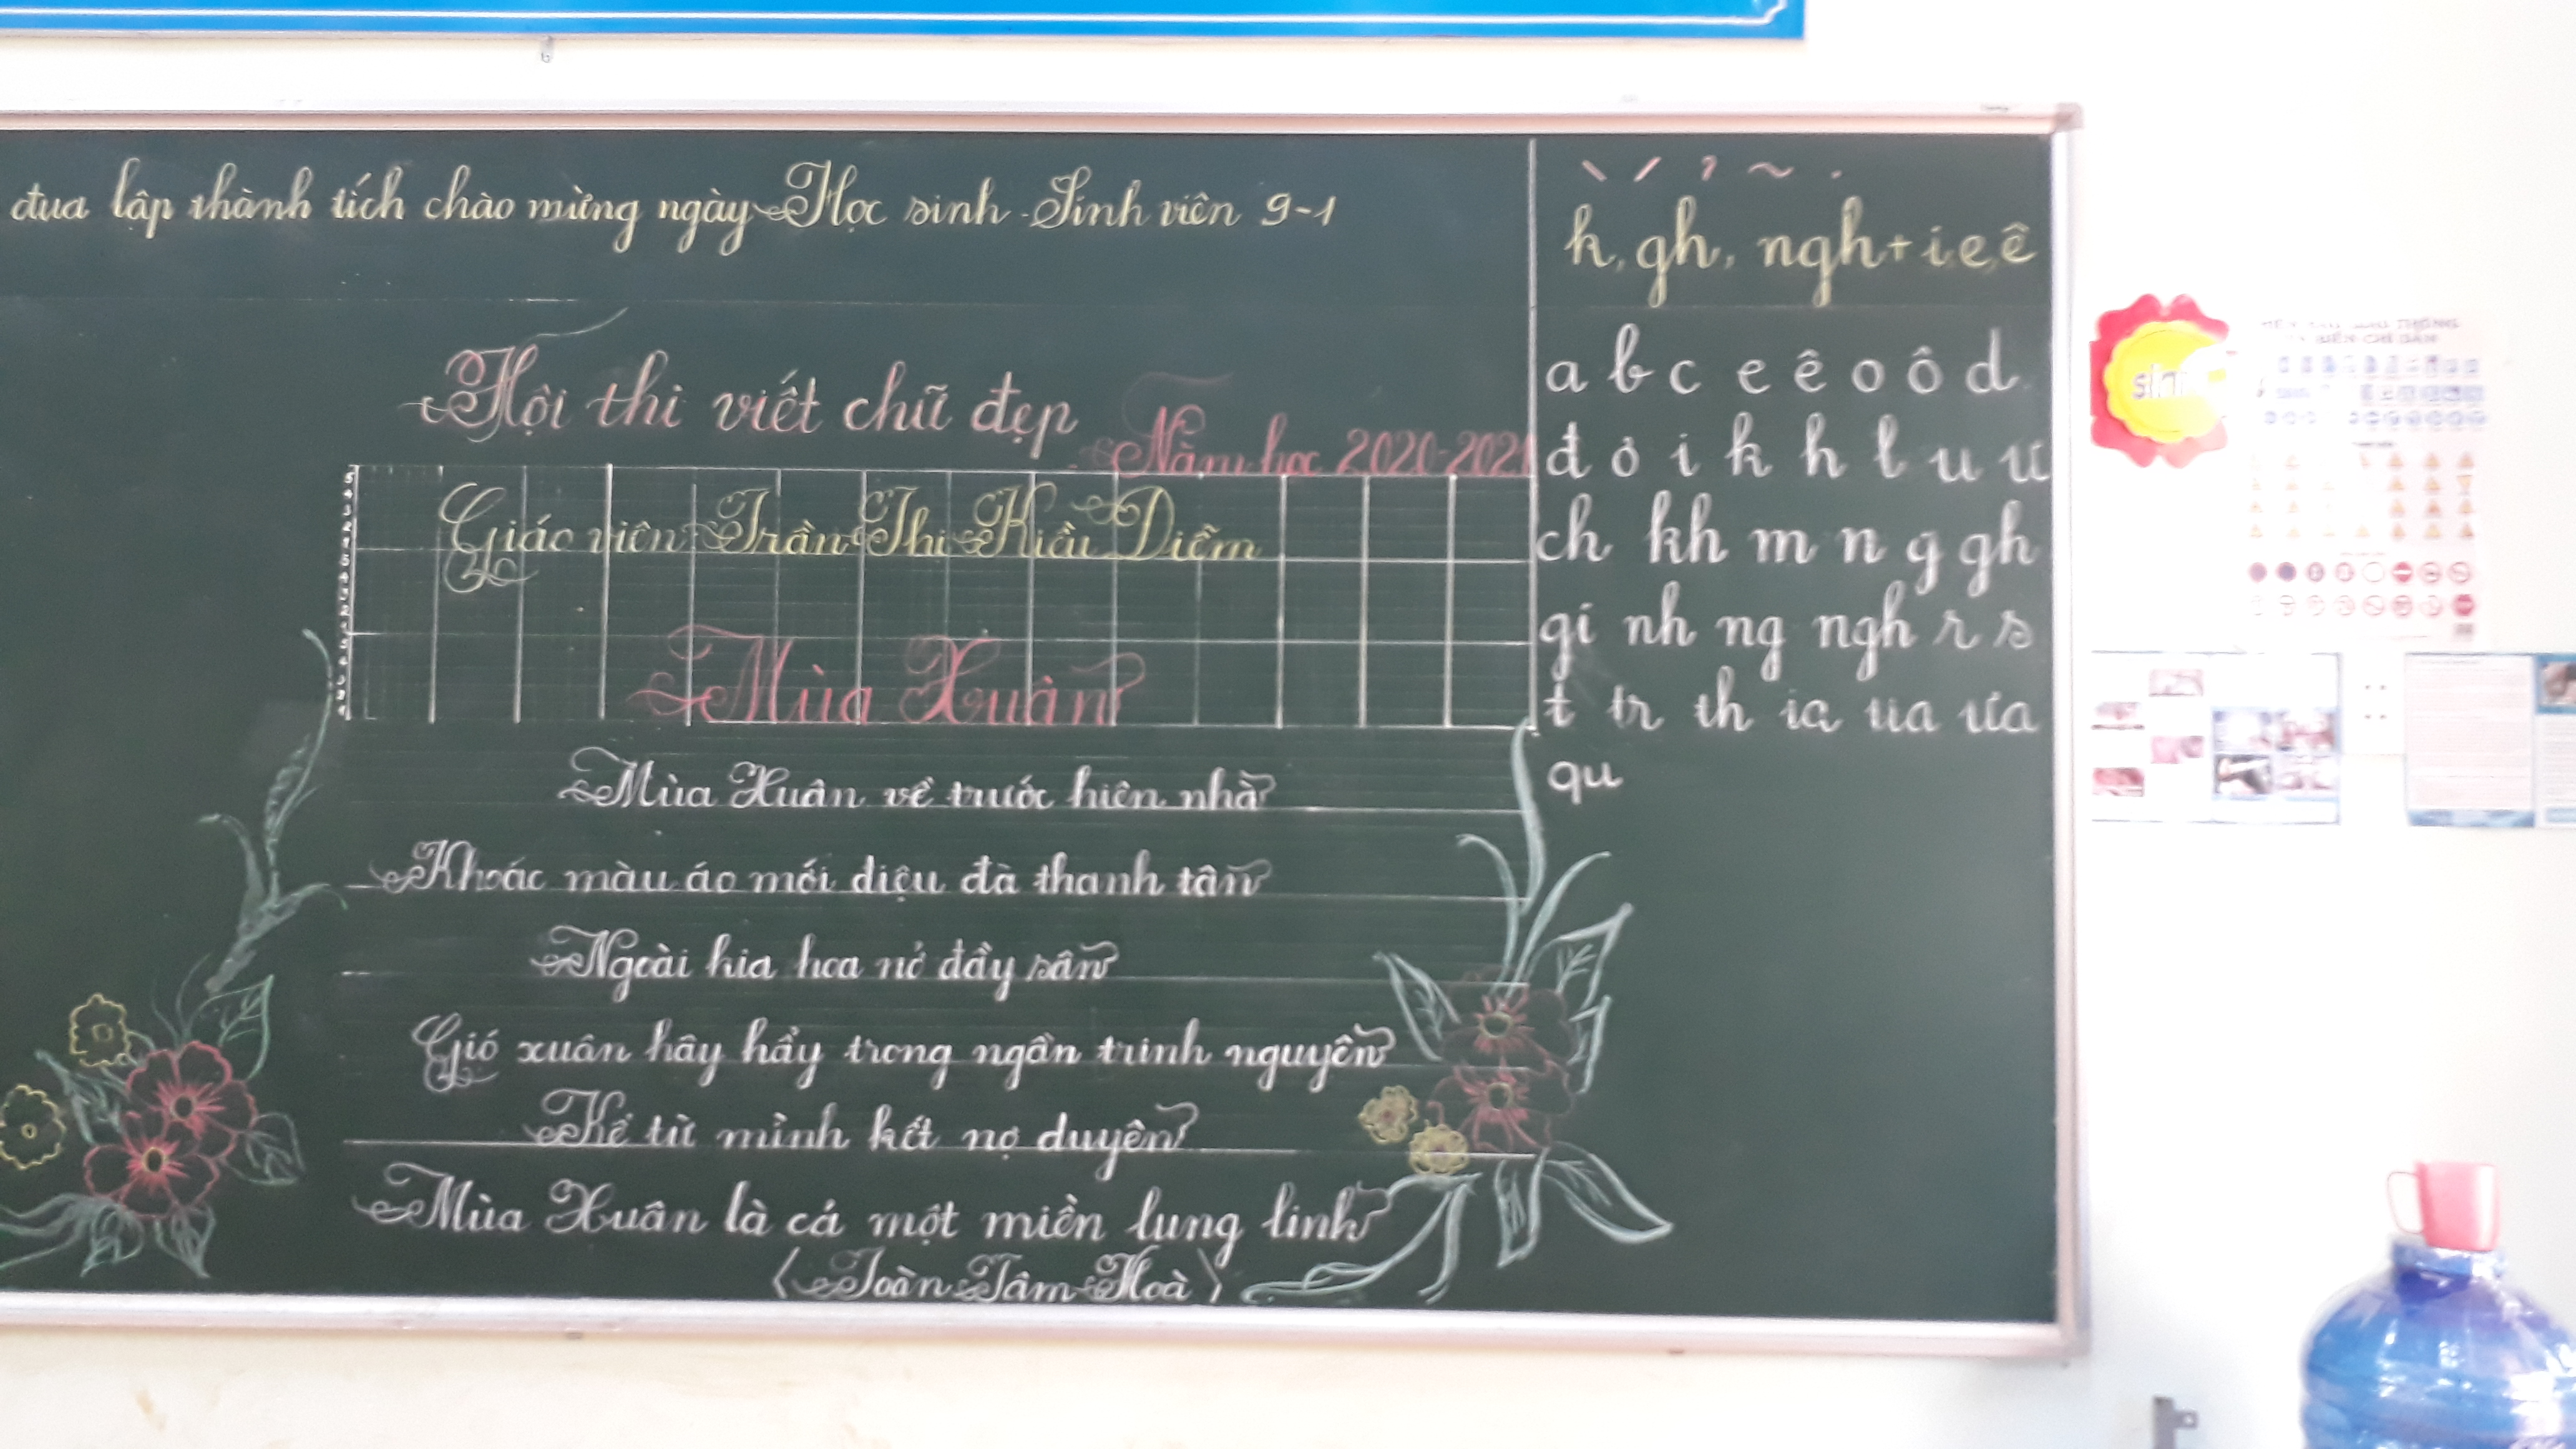 đua lập thành tích chào mừng ngày Học sinh - Sinh viên 9-1
Hội thi viết chữ đẹp
Năm học 2020-2021
Giáo viên: Trần Thị Kiều Diễm
Mùa Xuân
Mùa Xuân về trước hiên nhà
Khoác màu áo mới diệu đà thanh tân
Ngoài kia hoa nở đầy sân
Gió xuân hây hẩy trong ngần trinh nguyên
Kể từ mình kết nợ duyên
Mùa Xuân là cả một miền lung linh
(Toàn Tâm Hoà)
k, gh, ngh + i, e, ê
a b c e ê o ô d
đ ơ i k h l u ư
ch kh m n g gh
gi nh ng ngh r s
t tr th ia ua ưa
qu